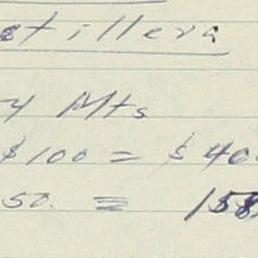 etillera
4 Mts
$100 = $40
50. =